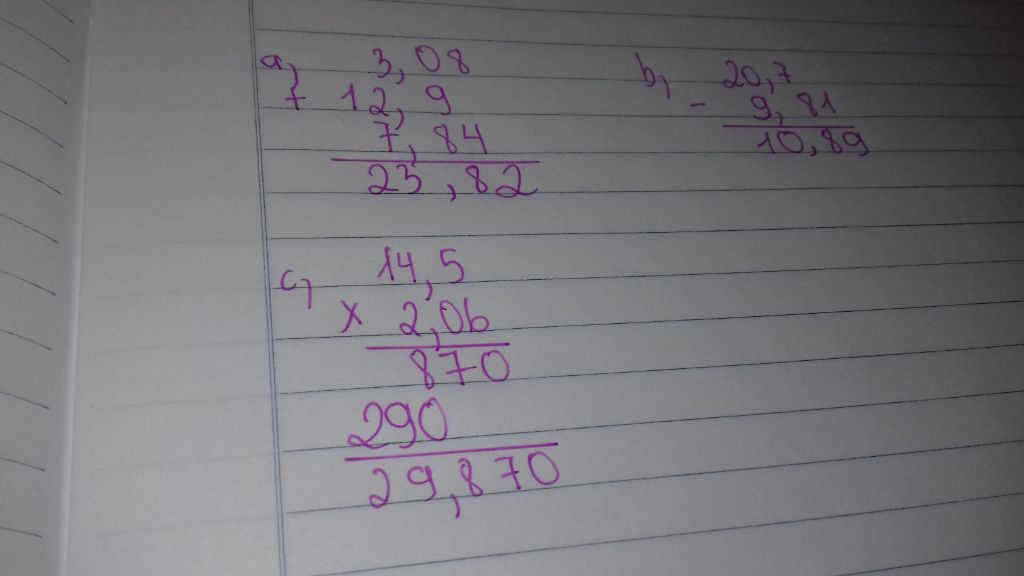 a) 3,08
+ 12,9
7,84
23,82
b) 20,7
- 9,81
10,89
c) 14,5
x 2,06
870
290
29,870